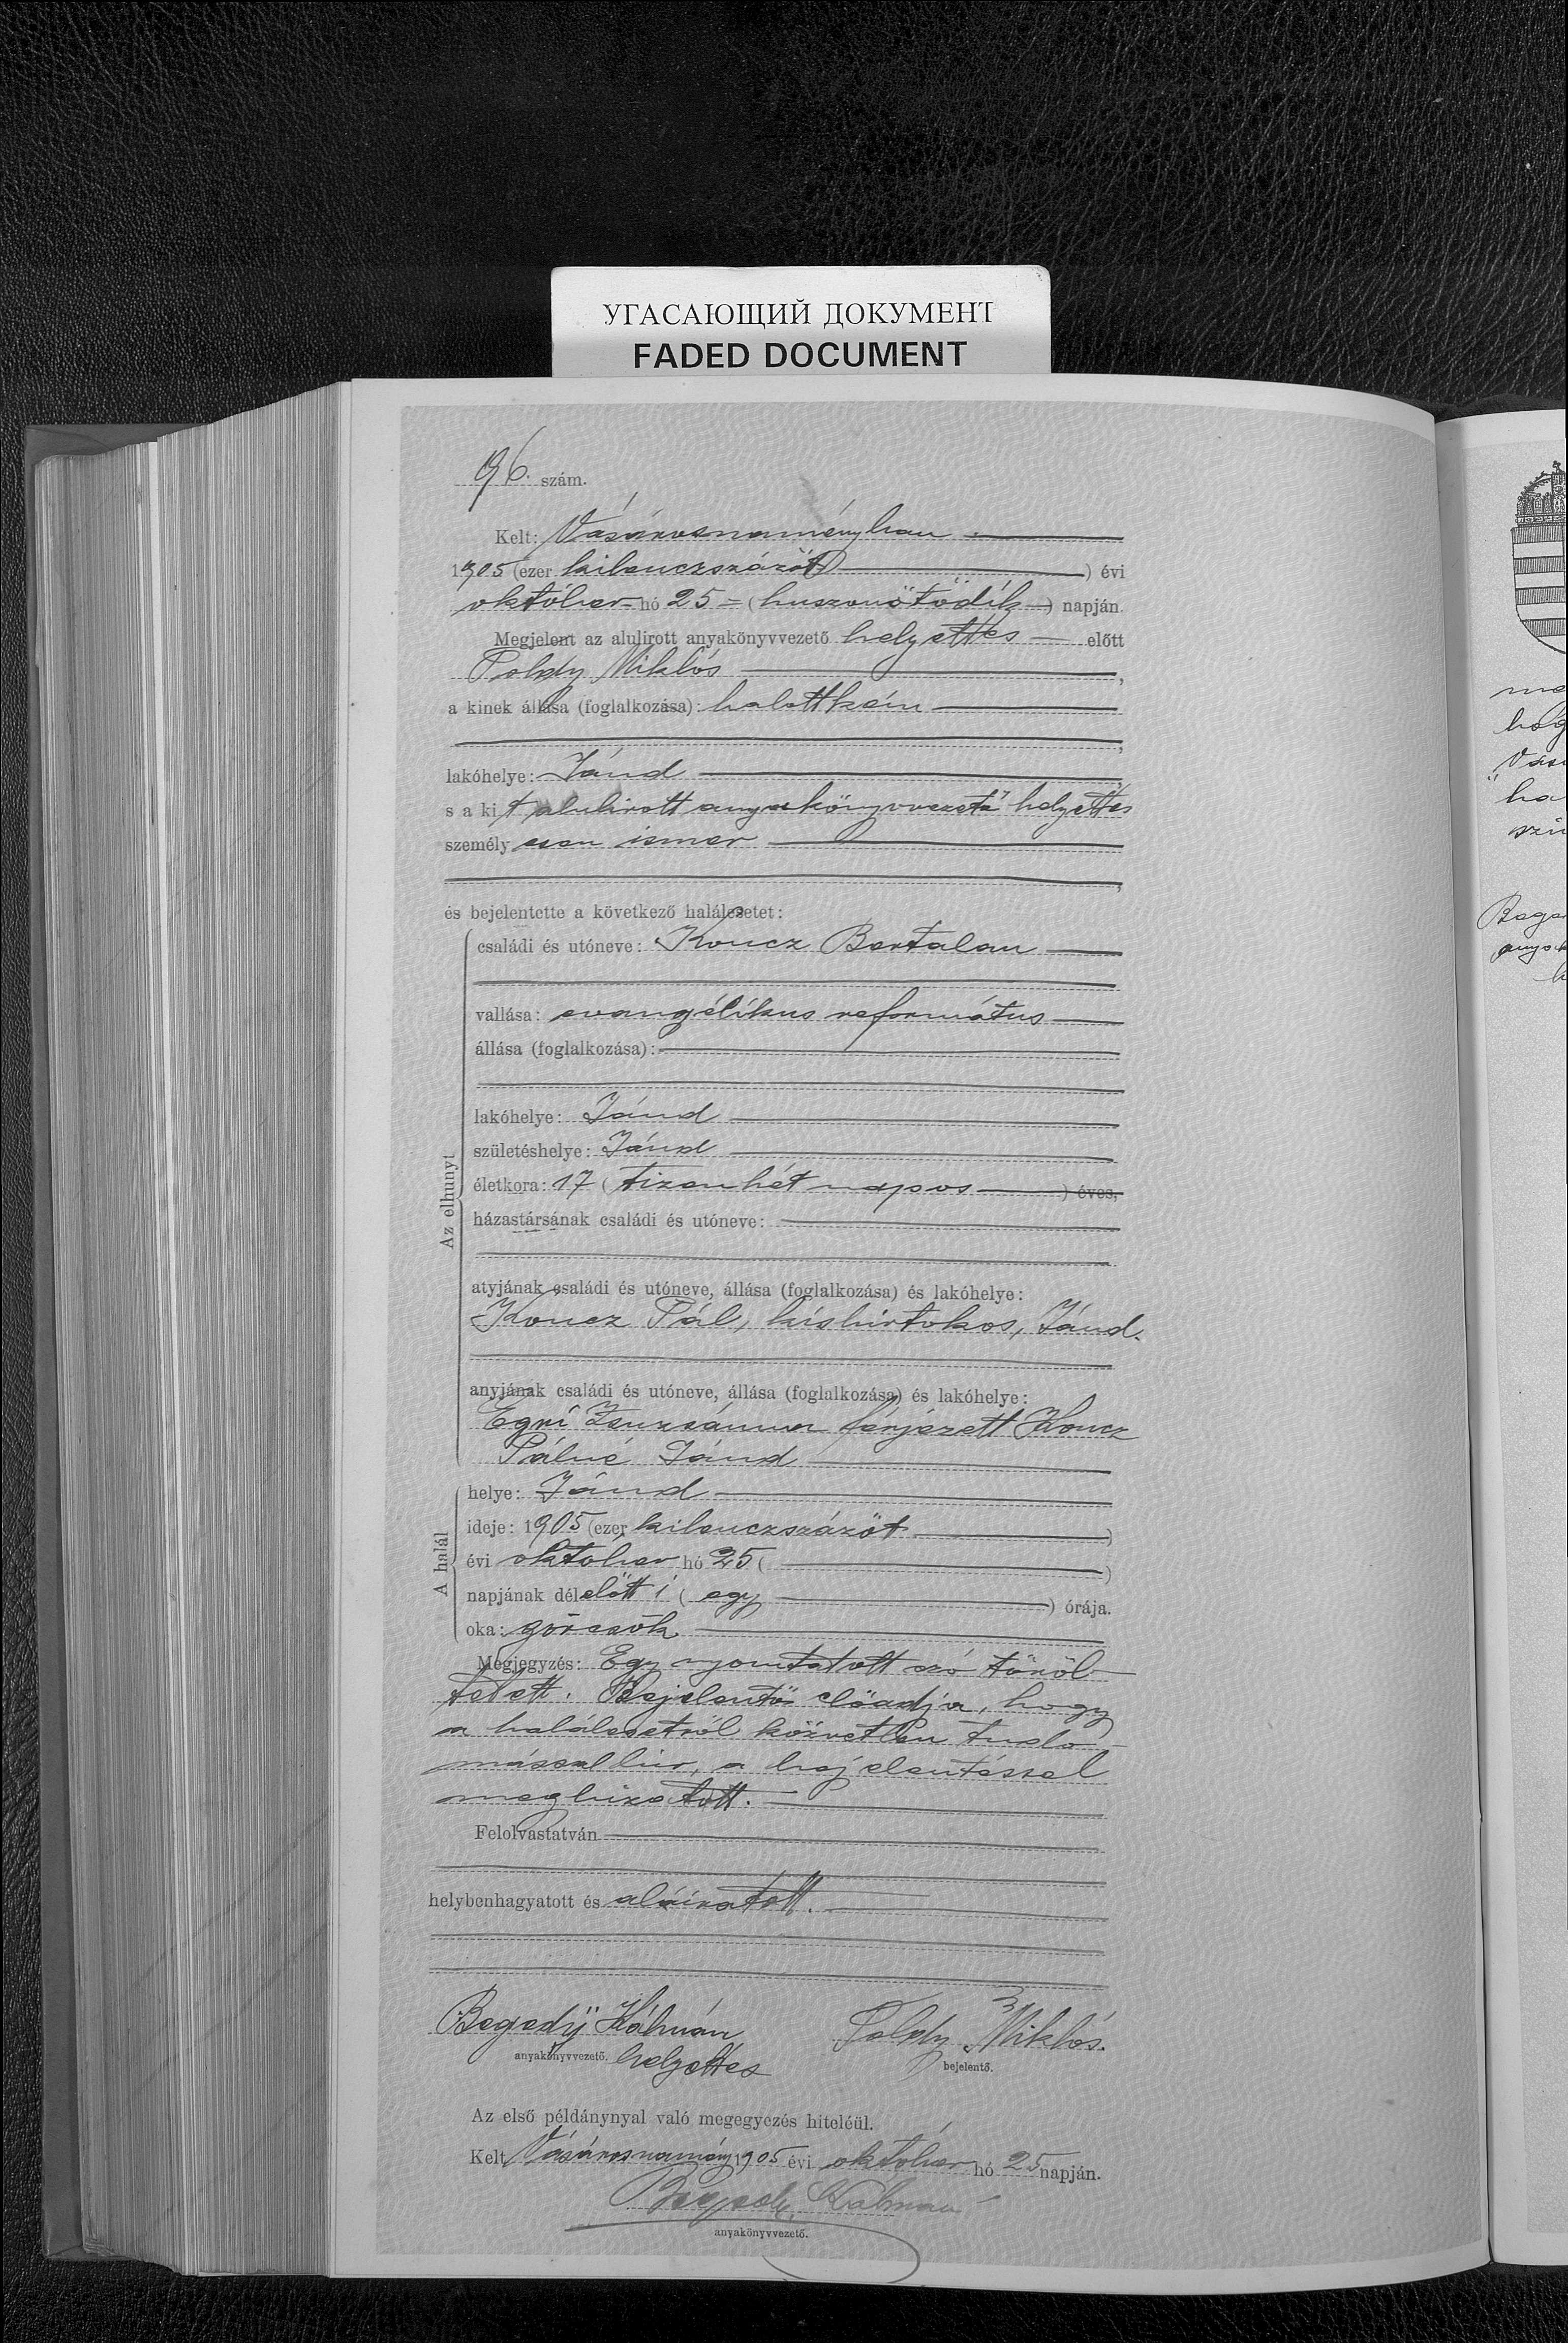 УГАСАЮЩИЙ ДОКУМЕНТ
FADED DOCUMENT
96. szám.
Kelt: Vásárosnaményban
1905 (ezer kilenczszázöt) évi
október hó 25 (huszonötödik) napján.
Megjelent az alulirott anyakönyvvezető helyettes előtt
Toldy Miklós,
a kinek állása (foglalkozása): halottkém
lakóhelye: Jánd
s a kit alulirott anyakönyvvezető helyettes
személyesen ismer
és bejelentette a következő halálesetet:
Az elhunyt
családi és utóneve: Koncz Bertalan
vallása: evangélikus református
állása (foglalkozása):
lakóhelye: Jánd
születéshelye: Jánd
életkora: 17 (tizenhét napos) éves,
házastársának családi és utóneve:
atyjának családi és utóneve, állása (foglalkozása) és lakóhelye:
Koncz Pál, kisbirtokos, Jánd.
anyjának családi és utóneve, állása (foglalkozása) és lakóhelye:
Egri Zsuzsánna férjezett Koncz
Pálné Jánd
A halál
helye: Jánd
ideje: 1905 (ezer kilenczszázöt)
évi október hó 25 ( )
napjának délelőtt 1 (egy) órája.
oka: görcsök
Megjegyzés: Egy nyomtatott szó töröl-
tetett. Bejelentő előadja, hogy
a halálesetről közvetlen tudo-
mással bir, a bejelentéssel
megbizatott.
Felolvastatván
helybenhagyatott és aláiratott.
Begedÿ Kálmán
anyakönyvvezető. helyettes
Toldy Miklós.
bejelentő.
Az első példánynyal való megegyezés hiteléül.
Kelt Vásárosnamény 1905 évi október hó 25 napján.
Begedy Kálmán
anyakönyvvezető.